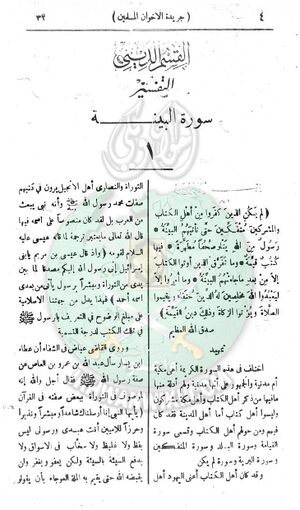 ٤
( جريدة الاخوان المسلمين )
٣٢
القسم الديني
التفسير
سورة البينة
١
( لم يكن الذين كفروا من أهل الكتاب
والمشركين منفكين حتى تأتيهم البينة •
رسول من الله يتلو صحفا مطهرة • فيها
كتب قيمة • وما تفرق الذين أوتوا الكتاب
إلا من بعد ما جاءتهم البينة • وما أمروا إلا
ليعبدوا الله مخلصين له الدين حنفاء ويقيموا
الصلاة ويؤتوا الزكاة وذلك دين القيمة )
صدق الله العظيم
تمهيد
اختلف في هذه السورة الكريمة أهى مكية
أم مدنية والجمهور على أنها مدنية ولهم أدلة منها
ما فيها من ذكر أهل الكتاب وأهل مكة أميون
وليسوا أهل كتاب أما أهل المدينة فقد كان
فيهم ومن حولهم أهل الكتاب وتسمى سورة
القيامة وسورة البلد وسورة المنفكين
وسورة البرية وسورة لم يكن
وقد كان أهل الكتاب أعنى اليهود أهل
التوراة والنصارى أهل الانجيل يرون في كتبهم
صفات محمد رسول الله ﷺ وأنه نبي يبعث
من العرب بل لقد كان منصوصاً على اسمه فيها
قال الله تعالى مايعتبر ترجمة لما قاله عيسى عليه
السلام لقومه ( وإذ قال عيسى بن مريم يابنى
إسرائيل إني رسول الله إليكم مصدقا لما بين
يدى من التوراة ومبشراً برسول يأتى من بعدى
اسمه أحمد ) فهذا يدل من جهتنا الاسلامية
على مبلغ الوضوح في التعريف بالرسول ﷺ
في تلك الكتب لدرجة التسمية
وروى القاضى عياض فى الشفاء أن عطاء
ابن يسار سأل عبد الله بن عمرو بن العاص عن
صفة رسول الله ﷺ فقال أجل والله إنه
لموصوف في التوراة ببعض صفته في القرآن
( يأيها النبي إنا أرسلناك شاهداً ومبشراً ونذيراً
وحرزاً للاميين أنت عبدى ورسولى ليس
بفظ ولا غليظ ولا سخاب في الاسواق ولا
يدفع السيئة بالسيئة ولكن يعفو ويغفر ولن
يقبضه الله حتى يقيم به الملة العوجاء بأن يقولوا